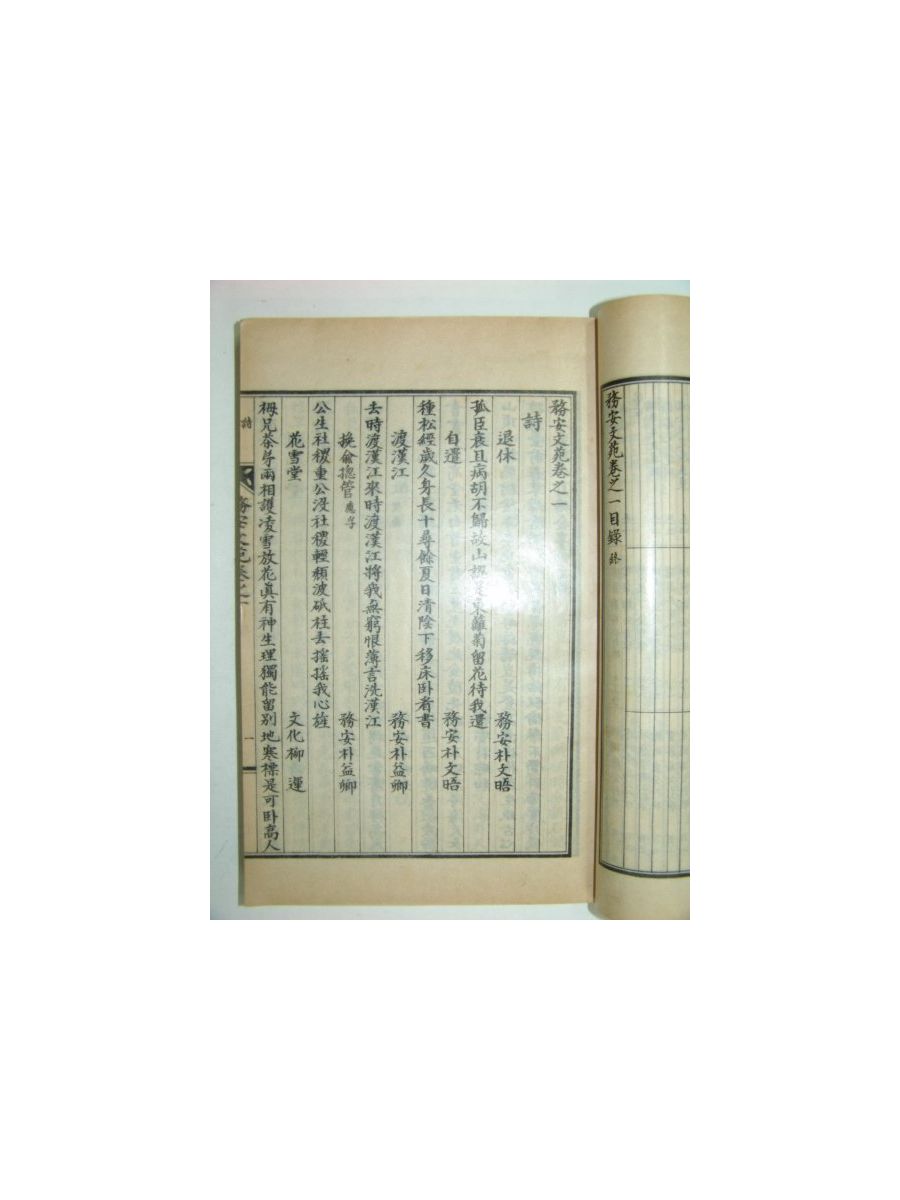 務安文苑卷之一目錄 終
務安文苑卷之一
詩
退休 務安朴文晤
孤臣衰且病胡不歸故山 東籬菊留花待我還
自遣 務安朴文晤
種松經歲久身長十尋餘夏日清陰下移床卧看書
渡漢江 務安朴益卿
去時渡漢江來時渡漢江將我無窮恨薄言洗漢江
挽兪摠管 應孚 務安朴益卿
公生社稷重公沒社稷輕頹波砥柱去搖搖我心旌
花雪堂 文化柳運
梅兄茶弟兩相護凌雪放花眞有神生理獨能留別地寒標是可卧高人
詩
務安文苑卷之一
一